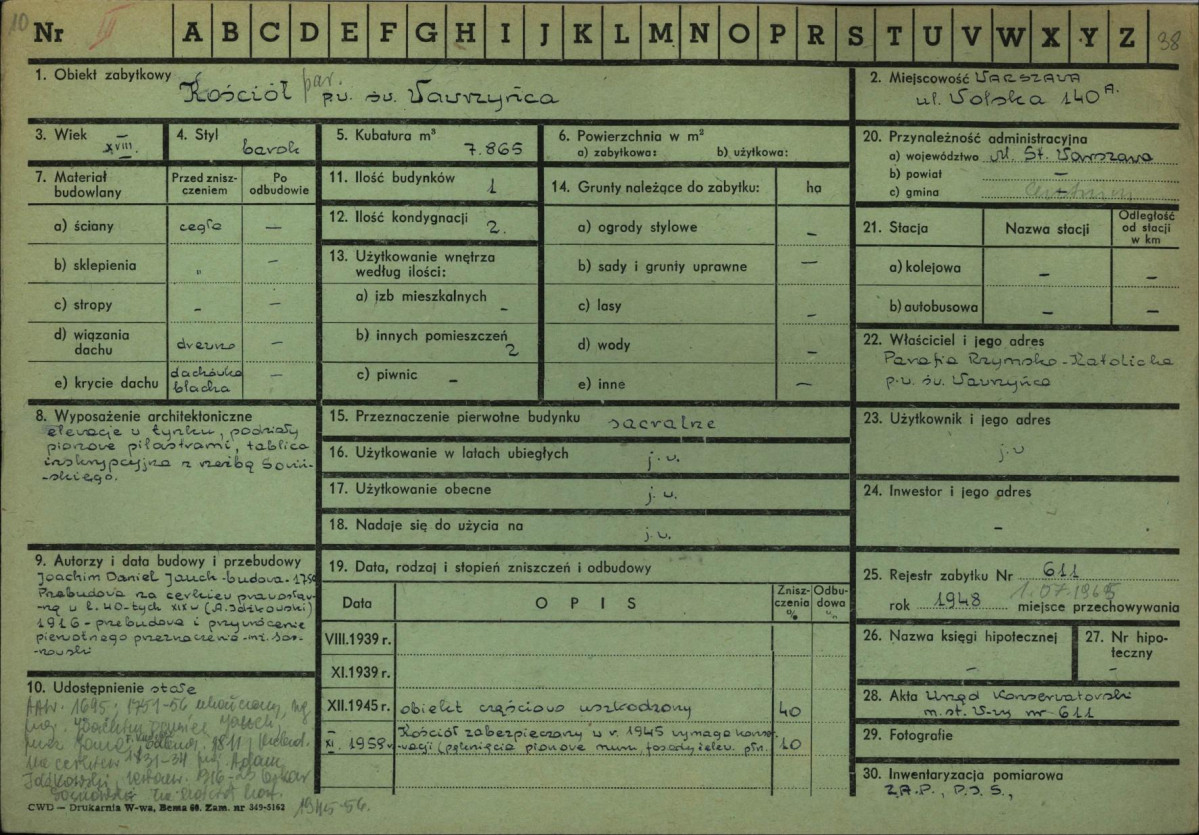 10 Nr III A B C D E F G H I J K L M N O P R S T U V W X Y Z 38
1. Obiekt zabytkowy Kościół par. p.w. św. Wawrzyńca
2. Miejscowość WARSZAWA
ul. Wolska 140 A.
3. Wiek XVIII.
4. Styl barok
5. Kubatura m³ 7.865
6. Powierzchnia w m²
a) zabytkowa: b) użytkowa:
20. Przynależność administracyjna
a) województwo M. St. Warszawa
b) powiat —
c) gmina —
7. Materiał budowlany
Przed zniszczeniem
Po odbudowie
a) ściany cegła —
b) sklepienia „ —
c) stropy - —
d) wiązania dachu drewno —
e) krycie dachu dachówka blacha —
11. Ilość budynków 1
12. Ilość kondygnacji 2.
13. Użytkowanie wnętrza
według ilości:
a) izb mieszkalnych -
b) innych pomieszczeń 2
c) piwnic —
14. Grunty należące do zabytku: ha
a) ogrody stylowe —
b) sady i grunty uprawne —
c) lasy —
d) wody —
e) inne —
21. Stacja
Nazwa stacji
Odległość od stacji w km
a) kolejowa — —
b) autobusowa — —
22. Właściciel i jego adres
Parafia Rzymsko-Katolicka
p.w. św. Wawrzyńca
8. Wyposażenie architektoniczne
elewacje w tynku, podziały
pionowe pilastrami, tablica
inskrypcyjna z rzeźbą Sowiń-
-skiego.
15. Przeznaczenie pierwotne budynku sacralne
16. Użytkowanie w latach ubiegłych j.w.
17. Użytkowanie obecne j.w.
18. Nadaje się do użycia na j.w.
23. Użytkownik i jego adres
j.w
24. Inwestor i jego adres
—
9. Autorzy i data budowy i przebudowy
Joachim Daniel Jauch - budowa -
Przebudowa na cerkiew prawosław-
-ną w l. 40-tych XIX w (A. Idźkowski)
1916 - przebudowa i przywrócenie
pierwotnego przeznaczenia -
19. Data, rodzaj i stopień zniszczeń i odbudowy
Data
O P I S
Zniszczenia %
Odbudowa %
VIII.1939 r.
XI.1939 r.
XII.1945 r. obiekt częściowo uszkodzony 40
XI. 1959 r. Kościół zabezpieczony w r. 1945 wymaga konser-
-wacji (pęknięcia pionowe mur. fasady i elew. płn. 10
25. Rejestr zabytku Nr 611
rok 1948 1.07.1965 miejsce przechowywania
26. Nazwa księgi hipotecznej
-
27. Nr hipoteczny
-
28. Akta Urząd Konserwatorski
m.st. W-wy nr 611
29. Fotografie
30. Inwentaryzacja pomiarowa
Z.A.P., P.I.S.,
10. Udostępnienie stałe
1695, 1751-56 ukończony, wg
proj. Joachima Daniela Jauch,
1811,
na cerkiew 1831-34 proj. Adam
Idźkowski, restaur. 1916-23 Oskar
Sosnowski na kościół
1945-56.
CWD — Drukarnia W-wa, Bema 60. Zam. nr 349-5162